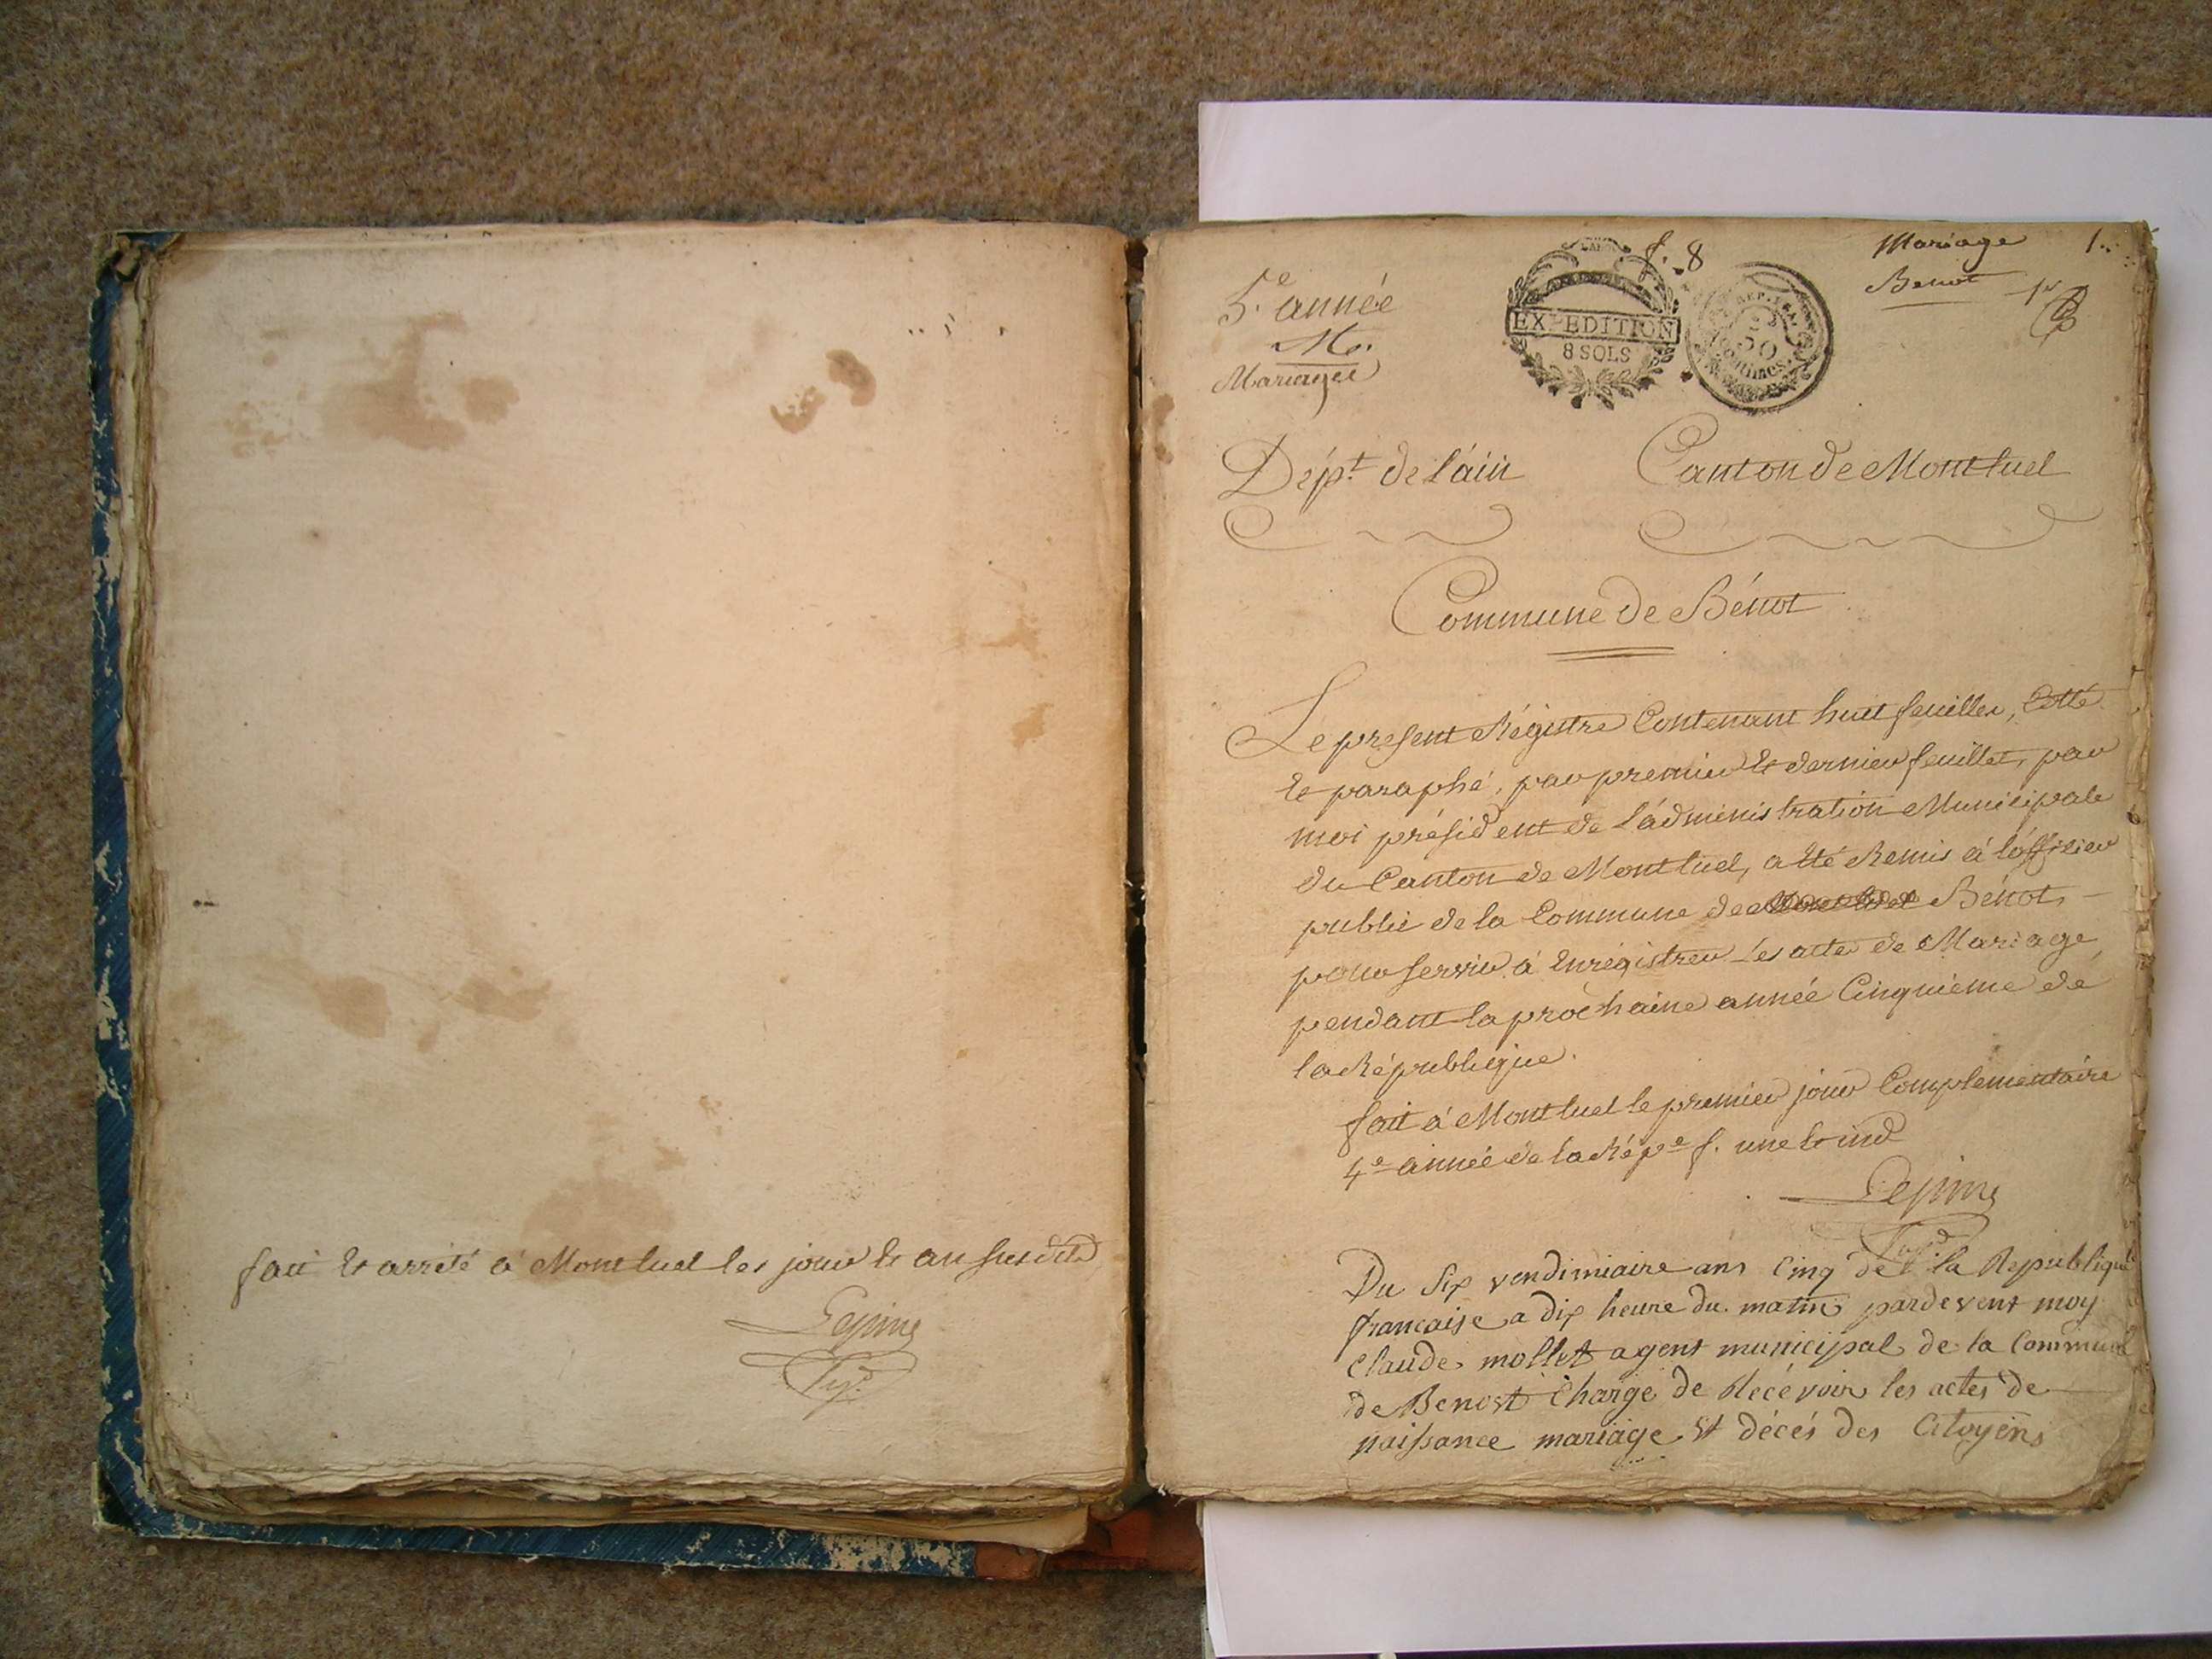 fait et arreté a Montluel les jour et an susdits
Lepine
5.e année
M.
Mariages
EXPEDITION
8 SOLS
f. 8
REP. FRA.
50
Centimes
Mariage
Benot
1.
1er
Dépt. de l'ain
Canton de Montluel
Commune de Bénot
Le present Régistre Contenant huit feuilles, Cotté
et paraphé, par premier et dernier feuillet, par
moi président de l'administration Municipale
du Canton de Montluel, a été Remis à l'officier
public de la Commune de Bénot,
pour servir à Enrégistrer Les actes de Mariage
pendant la prochaine année Cinquieme de
la République.
fait à Montluel le premier jour Complementaire
4.e année de la Rép.e f. une et ind
Lepine
Du Six vendimiaire ans Cinq de la Republique
francaise a dix heure du matin pardevent moy
Claude mollet agent municipal de la Commune
de Benost Chargé de Recévoir les actes de
naissance mariage et décés des Citoyens